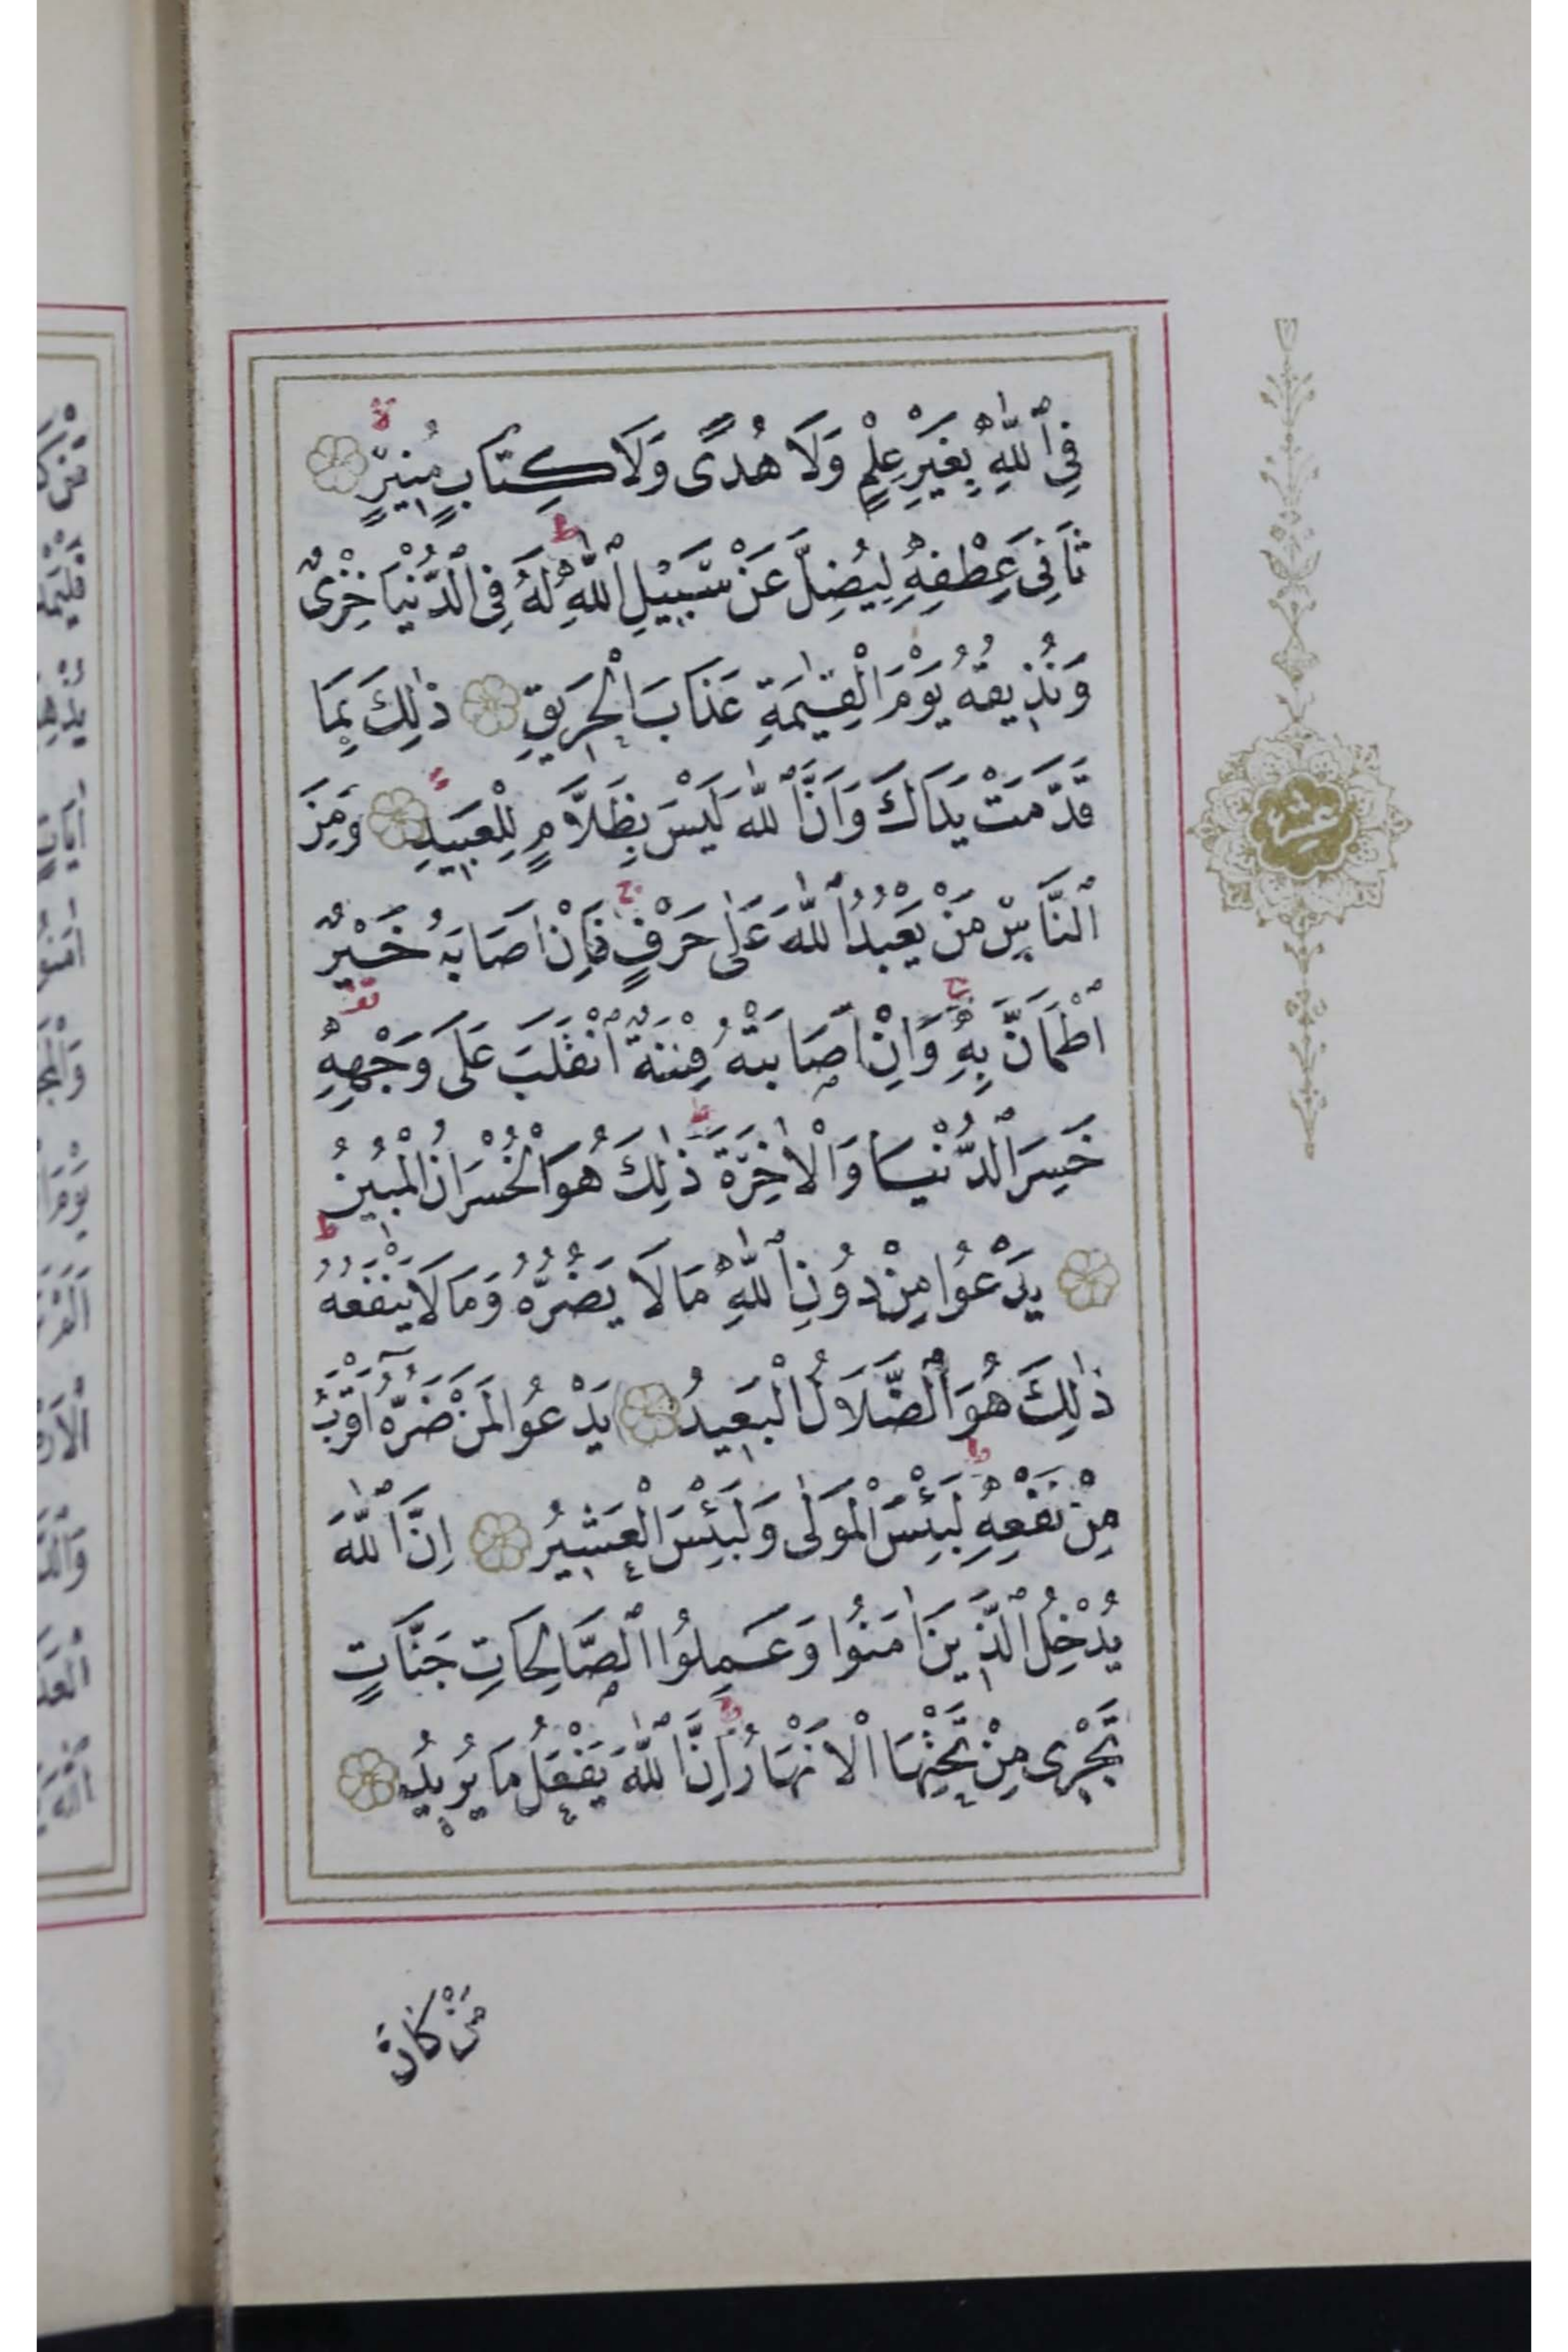 فِي ٱللّٰهِ بِغَيْرِ عِلْمٍ وَلَا هُدًى وَلَا كِتَابٍ مُنِيرٍ
ثَانِيَ عِطْفِهِ لِيُضِلَّ عَنْ سَبِيلِ ٱللّٰهِ لَهُ فِي ٱلدُّنْيَا خِزْيٌ
وَنُذِيقُهُ يَوْمَ الْقِيٰمَةِ عَذَابَ الْحَرِيقِ ذٰلِكَ بِمَا
قَدَّمَتْ يَدَاكَ وَاَنَّ ٱللّٰهَ لَيْسَ بِظَلَّامٍ لِلْعَبِيدِ وَمِنَ
ٱلنَّاسِ مَنْ يَعْبُدُ ٱللّٰهَ عَلٰى حَرْفٍ فَاِنْ اَصَابَهُ خَيْرٌ
ٱطْمَاَنَّ بِهِ وَاِنْ اَصَابَتْهُ فِتْنَةٌ ٱنْقَلَبَ عَلٰى وَجْهِهِ
خَسِرَ ٱلدُّنْيَا وَالْاٰخِرَةَ ذٰلِكَ هُوَ الْخُسْرَانُ الْمُبِينُ
يَدْعُوا مِنْ دُونِ ٱللّٰهِ مَا لَا يَضُرُّهُ وَمَا لَا يَنْفَعُهُ
ذٰلِكَ هُوَ ٱلضَّلَالُ الْبَعِيدُ يَدْعُوا لَمَنْ ضَرُّهُٓ اَقْرَبُ
مِنْ نَفْعِهِ لَبِئْسَ الْمَوْلٰى وَلَبِئْسَ الْعَشِيرُ اِنَّ ٱللّٰهَ
يُدْخِلُ ٱلَّذِينَ اٰمَنُوا وَعَمِلُوا ٱلصَّالِحَاتِ جَنَّاتٍ
تَجْرِي مِنْ تَحْتِهَا الْاَنْهَارُ اِنَّ ٱللّٰهَ يَفْعَلُ مَا يُرِيدُ
مَنْ كَانَ